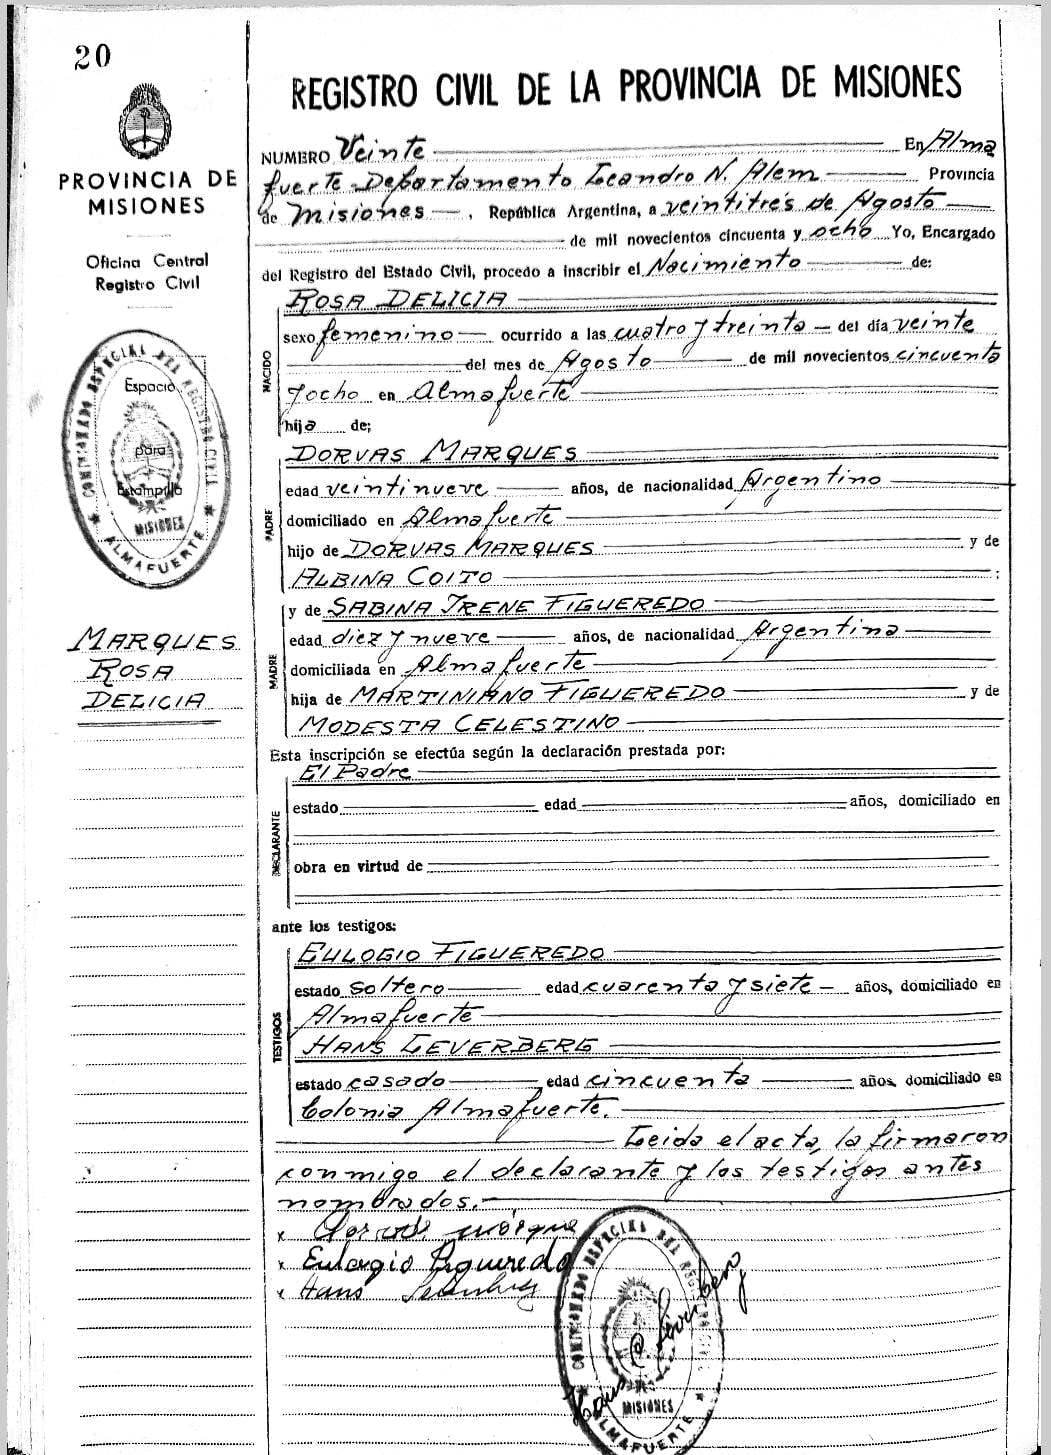 20
REGISTRO CIVIL DE LA PROVINCIA DE MISIONES
PROVINCIA DE
MISIONES
Oficina Central
Registro Civil
COMISIONADO ESPECIAL DEL REGISTRO CIVIL
Espacio
para
Estampilla
MISIONES
★ ALMAFUERTE ★
MARQUES
ROSA
DELICIA
NUMERO Veinte En Alma
fuerte Departamento Leandro N. Alem Provincia
de Misiones, República Argentina, a veintitrés de Agosto
de mil novecientos cincuenta y ocho Yo, Encargado
del Registro del Estado Civil, procedo a inscribir el Nacimiento de:
NACIDO
ROSA DELICIA
sexo femenino ocurrido a las cuatro y treinta del día veinte
del mes de Agosto de mil novecientos cincuenta
y ocho en Almafuerte
hija de;
PADRE
DORVAS MARQUES
edad veintinueve años, de nacionalidad Argentino
domiciliado en Almafuerte
hijo de DORVAS MARQUES y de
ALBINA COITO ;
MADRE
y de SABINA IRENE FIGUEREDO
edad diez y nueve años, de nacionalidad Argentina
domiciliada en Almafuerte
hija de MARTINIANO FIGUEREDO y de
MODESTA CELESTINO
Esta inscripción se efectúa según la declaración prestada por:
DECLARANTE
El Padre
estado edad años, domiciliado en
obra en virtud de
ante los testigos:
TESTIGOS
EULOGIO FIGUEREDO
estado soltero edad cuarenta y siete años, domiciliado en
Almafuerte
HANS LEVERBERG
estado casado edad cincuenta años, domiciliado en
Colonia Almafuerte.
Leida el acta, la firmaron
conmigo el declarante y los testigos antes
nombrados.
x
x Eulogio Figueredo
x Hans
COMISIONADO ESPECIAL DEL REGISTRO CIVIL
MISIONES
ALMAFUERTE ★